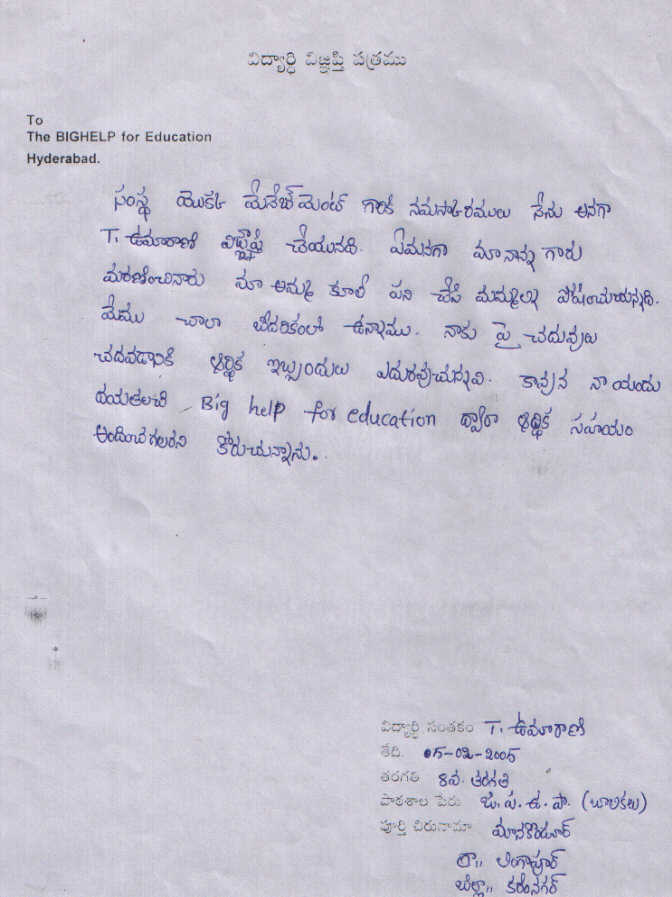 విద్యార్థి విజ్ఞప్తి పత్రము
To
The BIGHELP for Education
Hyderabad.
సంస్థ యొక్క మేనేజ్‌మెంట్ గారికి నమస్కారములు నేను అనగా
T. ఉమారాణి విజ్ఞప్తి చేయునది. ఏమనగా మా నాన్న గారు
మరణించినారు మా అమ్మ కూలి పని చేసి మమ్మల్ని పోషించుచున్నది.
మేము చాలా బీదరికంలో ఉన్నాము. నాకు పై చదువులు
చదవడానికి ఆర్థిక ఇబ్బందులు ఎదురవుచున్నవి. కావున నా యందు
దయతలచి Big help for education ద్వారా ఆర్థిక సహయం
అందించగలరని కోరుచున్నాను.
విద్యార్థి సంతకం T. ఉమారాణి
తేది. 05-02-2005
తరగతి 8వ. తరగతి
పాఠశాల పేరు జి. ప. ఉ. పా. (బాలికలు)
పూర్తి చిరునామా మానకొండూర్
గ్రా,, లింగాపూర్
జిల్లా,, కరీంనగర్